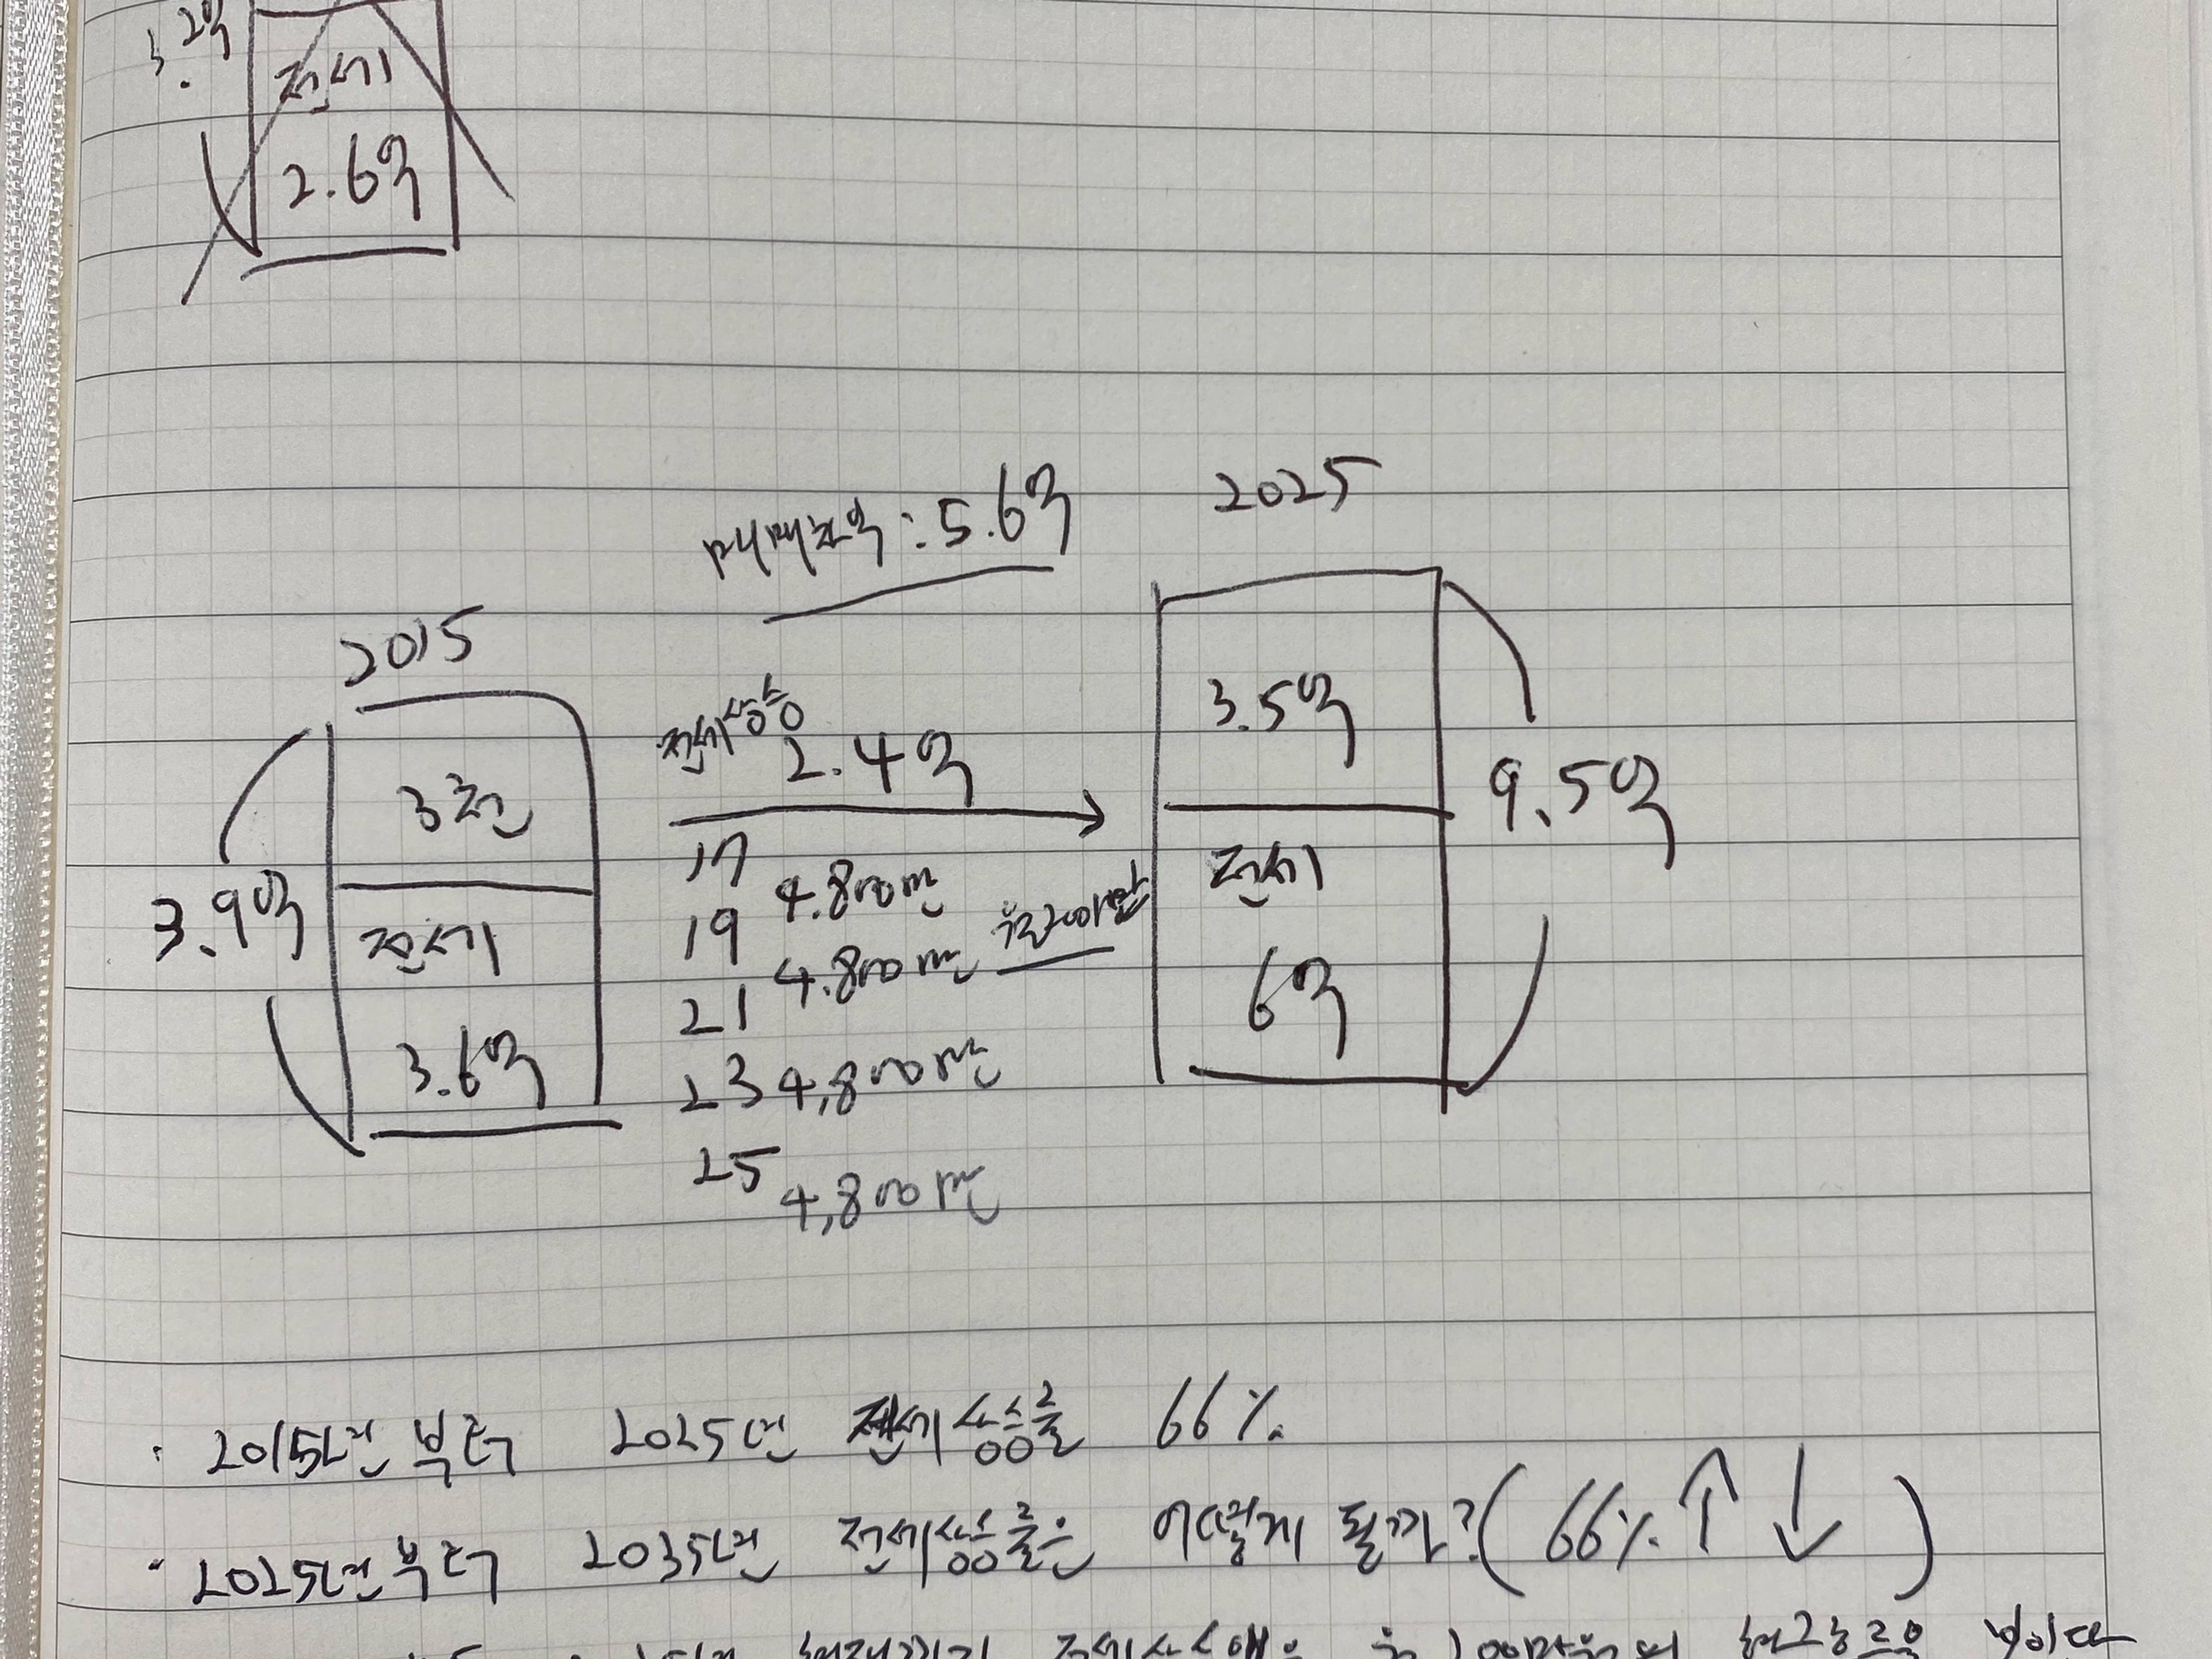 3.2억
전세
2.6억
매매차익 : 5.6억
2025
2015
3천
전세
3.6억
3.9억
전세상승
2.4억
17 4.800만
19 4.800만 월200만
21
23 4,800만
25 4,800만
3.5억
전세
6억
9.5억
· 2015년부터 2025년 전세상승률 66%.
· 2025년부터 2035년 전세상승률은 어떻게 될까? ( 66% ↑ ↓ )